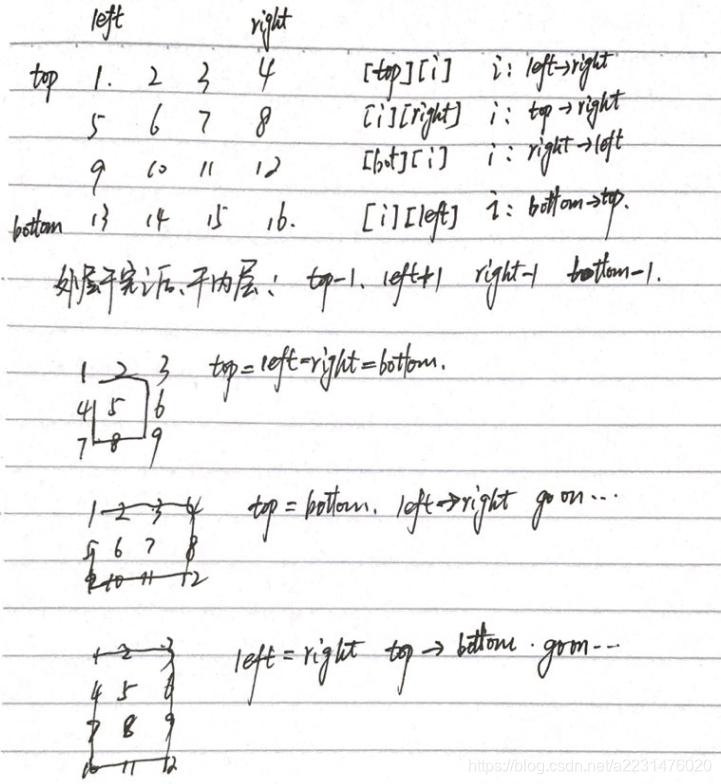 left right
top 1. 2 3 4 [top][i] i: left→right
5 6 7 8 [i][right] i: top→right
9 10 11 12 [bot][i] i: right→left
bottom 13 14 15 16. [i][left] i: bottom→top.
外层干完之后、干内层: top-1. left+1 right-1 bottom-1.
1 2 3 top=left=right=bottom.
4 5 6
7 8 9
1 2 3 4 top=bottom. left→right go on...
5 6 7 8
9 10 11 12
1 2 3 left=right top→bottom. go on...
4 5 6
7 8 9
10 11 12
https://blog.csdn.net/a2231476020